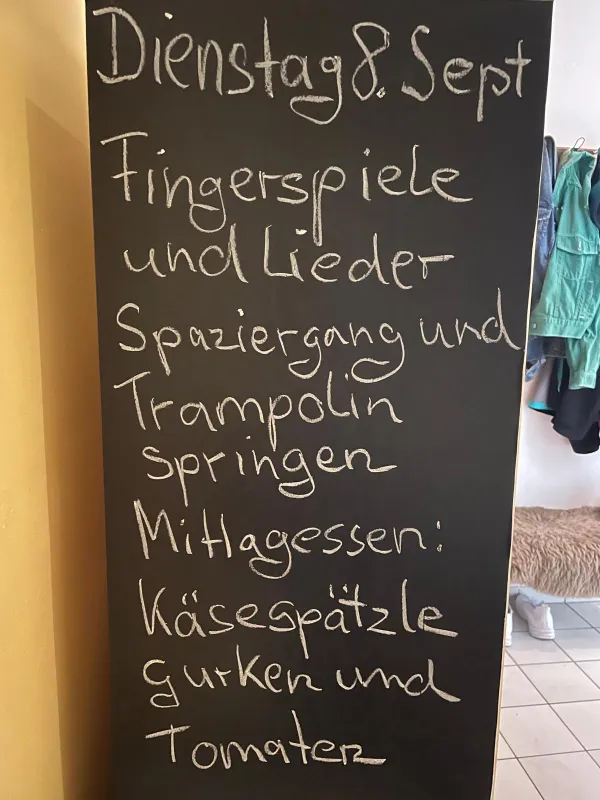 Dienstag 8. Sept
Fingerspiele
und Lieder
Spaziergang und
Trampolin
springen
Mittagessen:
Käsespätzle
gurken und
Tomaten